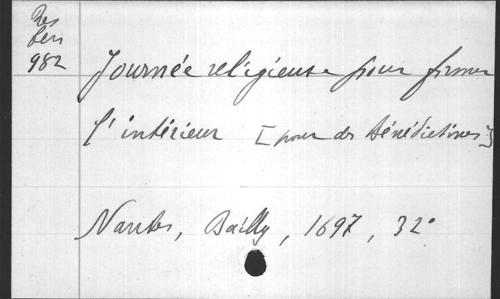 Res
982
Journée religieuse pour former
l'intérieur [pour des Bénédictines]
Nantes, Bailly, 1697, 32°